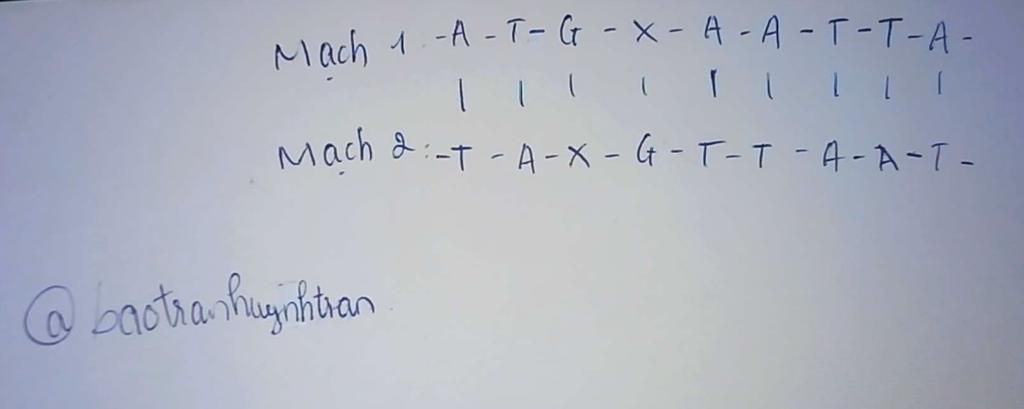 Mạch 1 -A-T-G-X-A-A-T-T-A-
| | | | | | | | |
Mạch 2:-T-A-X-G-T-T-A-A-T-
@baotranhuynhtran